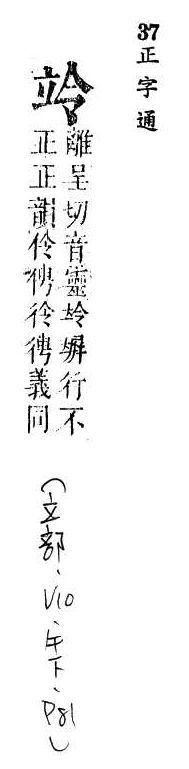 37正字通
竛
離呈切音靈竛竮行不
正正韻伶俜彾𢓳義同
(立部、V10、午下、P81)